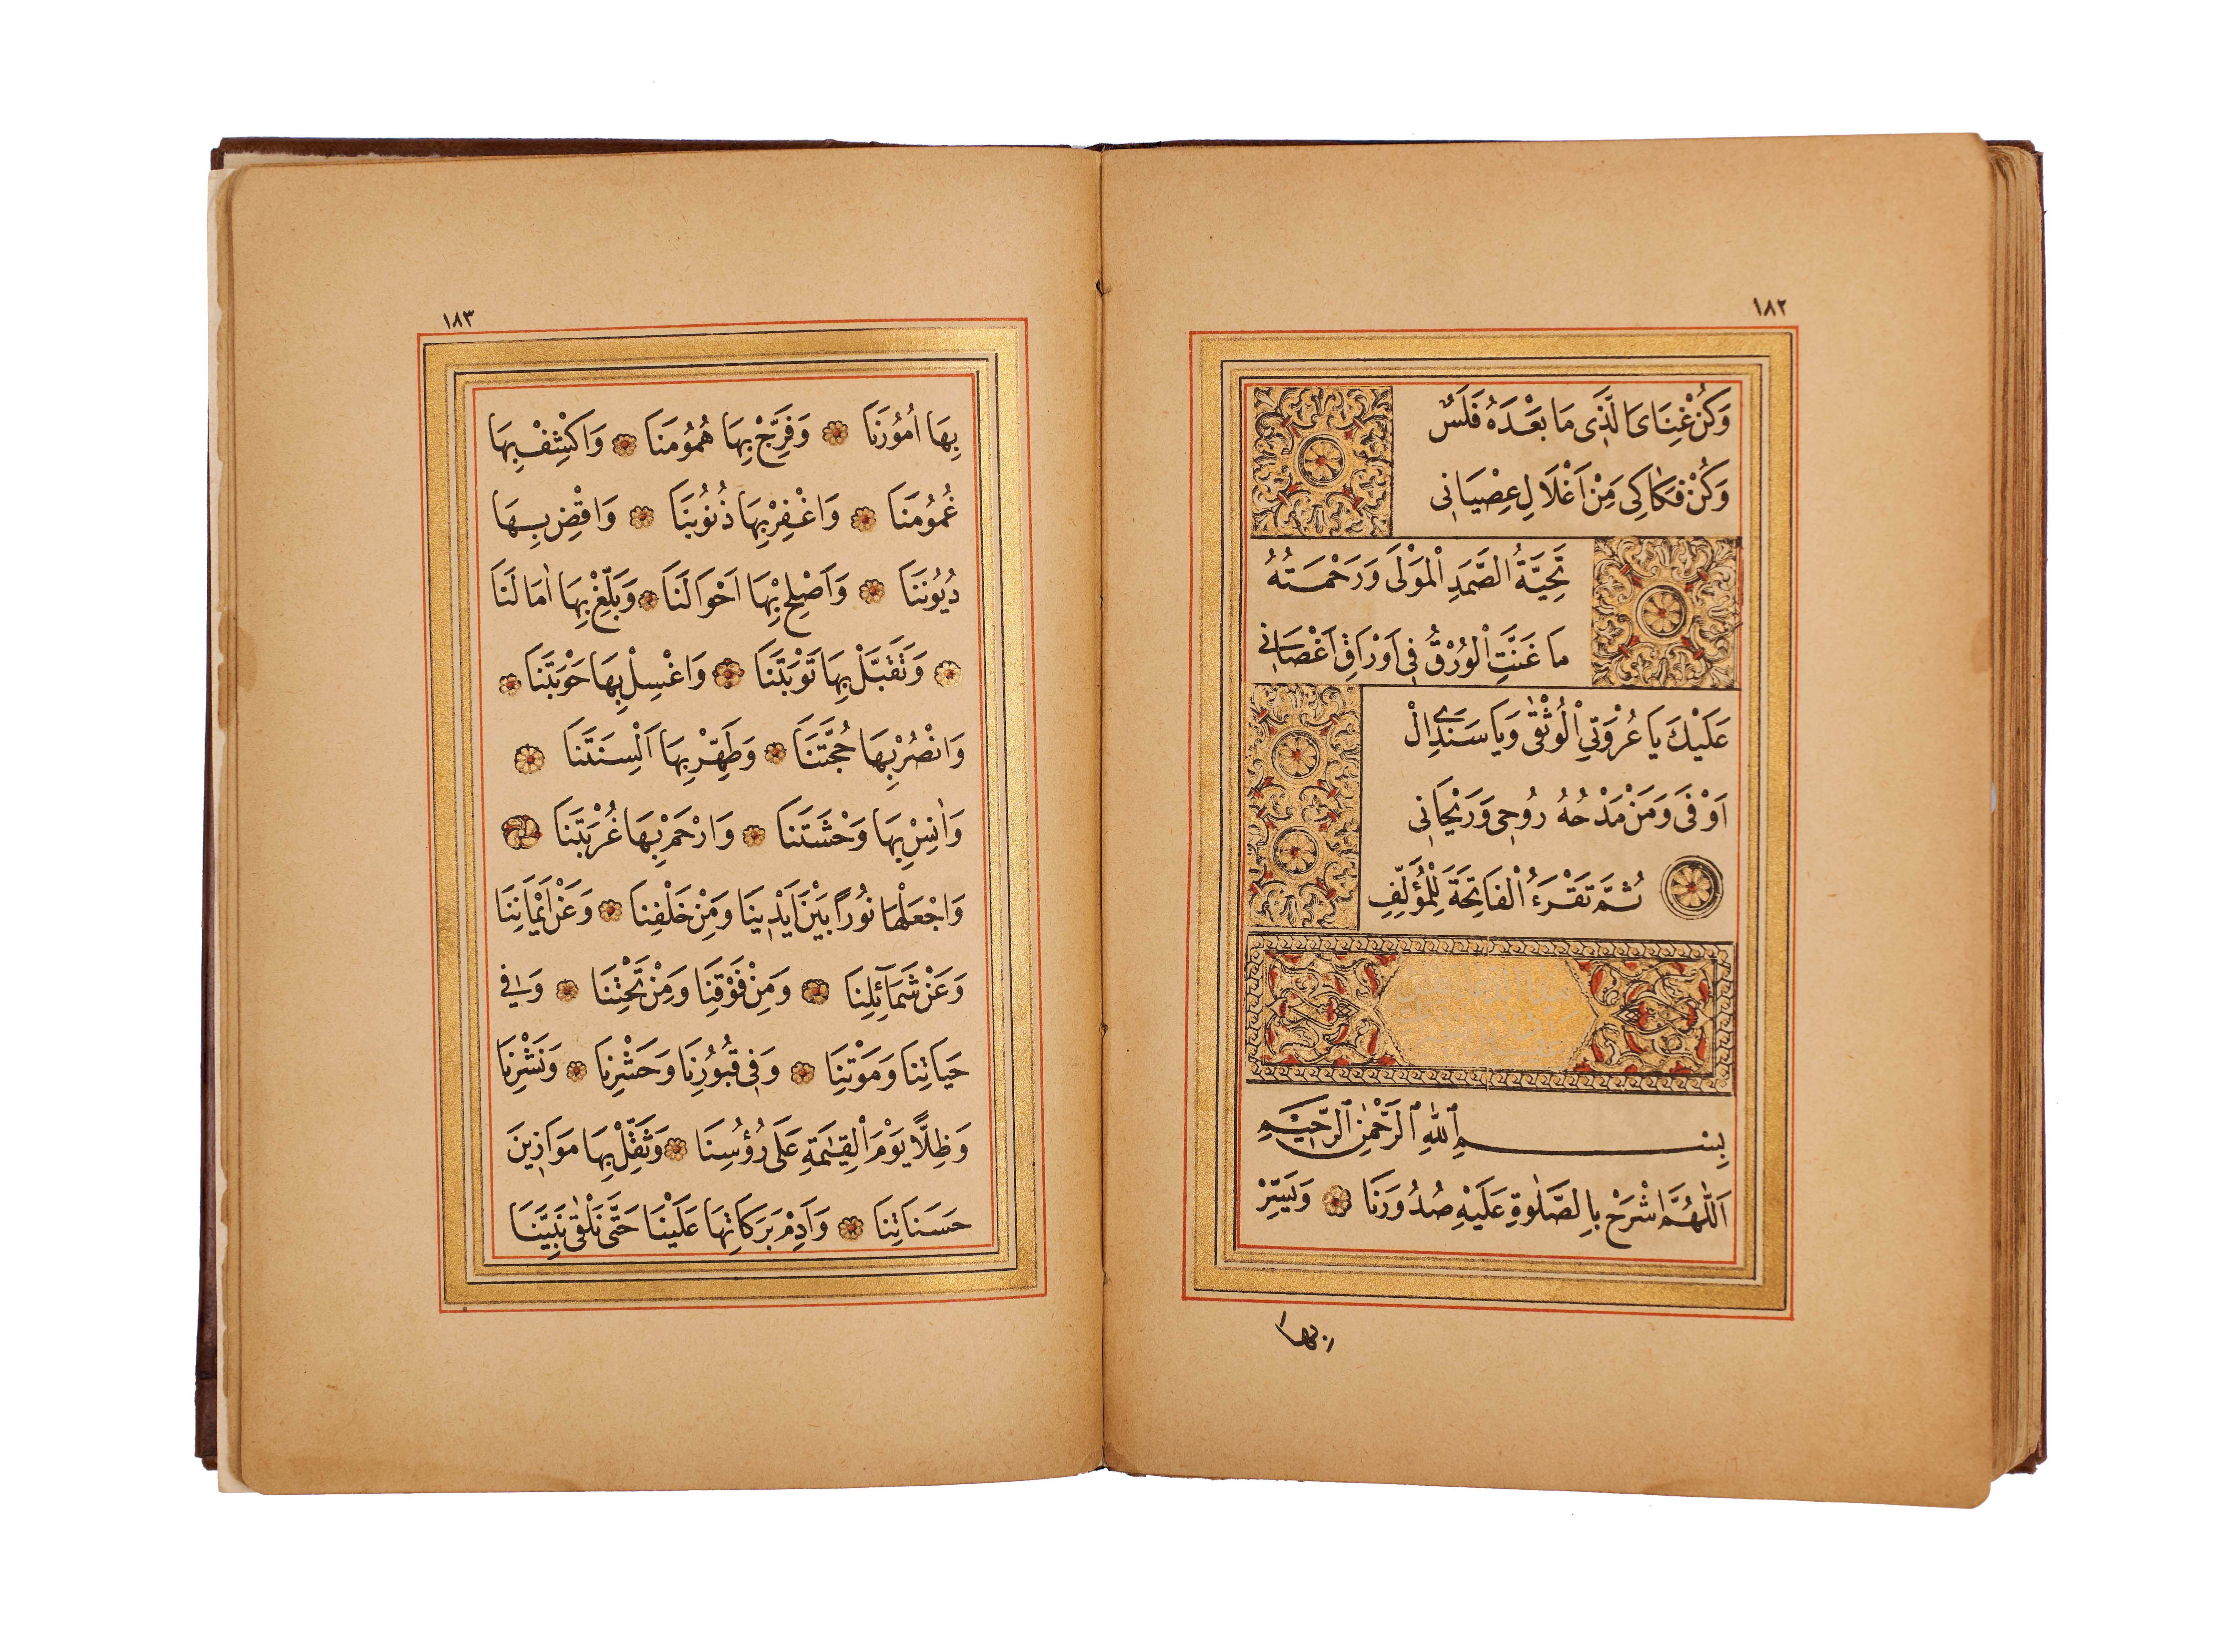 ١٨٢
وَكُنْ غِنَاىَ الَّذِى مَا بَعْدَهُ فَلَسٌ
وَكُنْ فَكَاكِى مِنْ اَغْلَالِ عِصْيَانِى
تَحِيَّةُ الصَّمَدِ الْمَوْلَى وَرَحْمَتُهُ
مَا غَنَّتِ الْوُرْقُ فِى اَوْرَاقِ اَغْصَانِى
عَلَيْكَ يَا عُرْوَتِى الْوُثْقٰى وَيَا سَنَدِى الْ
اَوْفَى وَمَنْ مَدْحُهُ رُوحِى وَرَيْحَانِى
ثُمَّ تَقْرَءُ الْفَاتِحَةَ لِلْمُؤَلِّفِ
بِسْمِ اللّٰهِ الرَّحْمٰنِ الرَّحِيمِ
اَللّٰهُمَّ اشْرَحْ بِالصَّلٰوةِ عَلَيْهِ صُدُورَنَا وَيَسِّرْ
بها
١٨٣
بِهَا اُمُورَنَا وَفَرِّجْ بِهَا هُمُومَنَا وَاكْشِفْ بِهَا
غُمُومَنَا وَاغْفِرْ بِهَا ذُنُوبَنَا وَاقْضِ بِهَا
دُيُونَنَا وَاَصْلِحْ بِهَا اَحْوَالَنَا وَبَلِّغْ بِهَا اٰمَالَنَا
وَتَقَبَّلْ بِهَا تَوْبَتَنَا وَاغْسِلْ بِهَا حَوْبَتَنَا
وَانْصُرْ بِهَا حُجَّتَنَا وَطَهِّرْ بِهَا اَلْسِنَتَنَا
وَاٰنِسْ بِهَا وَحْشَتَنَا وَارْحَمْ بِهَا غُرْبَتَنَا
وَاجْعَلْهَا نُورًا بَيْنَ اَيْدِينَا وَمِنْ خَلْفِنَا وَعَنْ اَيْمَانِنَا
وَعَنْ شَمَآئِلِنَا وَمِنْ فَوْقِنَا وَمِنْ تَحْتِنَا وَفِى
حَيَاتِنَا وَمَوْتِنَا وَفِى قُبُورِنَا وَحَشْرِنَا وَنَشْرِنَا
وَظِلًّا يَوْمَ الْقِيٰمَةِ عَلَى رُؤُسِنَا وَثَقِّلْ بِهَا مَوَازِينَ
حَسَنَاتِنَا وَاَدِمْ بَرَكَاتِهَا عَلَيْنَا حَتَّى نَلْقٰى نَبِيَّنَا